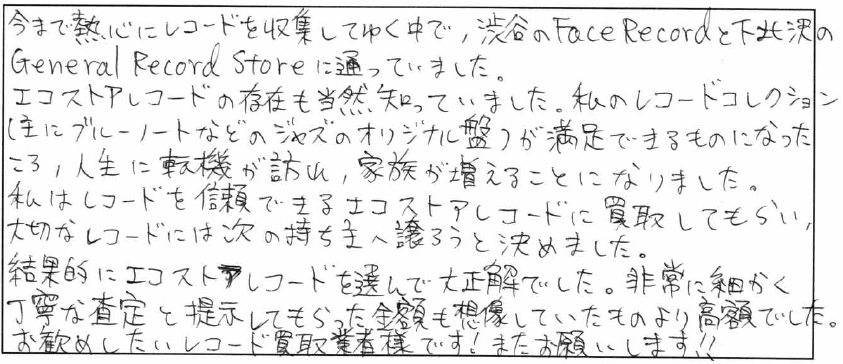 今まで熱心にレコードを収集してゆく中で,渋谷のFace Recordと下北沢の
General Record Storeに通っていました。
エコストアレコードの存在も当然、知っていました。私のレコードコレクション
(主にブルーノートなどのジャズのオリジナル盤)が満足できるものになった
ころ,人生に転機が訪れ,家族が増えることになりました。
私はレコードを信頼できるエコストアレコードに買取してもらい,
大切なレコードには次の持ち主へ譲ろうと決めました。
結果的にエコストアレコードを選んで大正解でした。非常に細かく
丁寧な査定と提示してもらった金額も想像していたものより高額でした。
お歓めしたいレコード買取業者様です!またお願いします!!